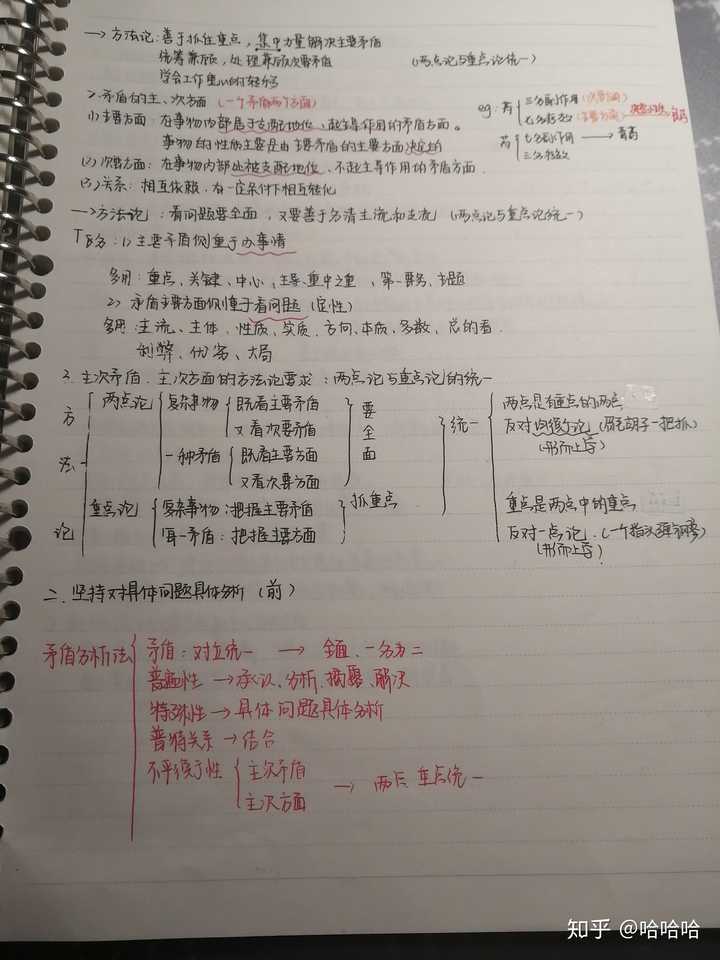 → 方法论：善于抓住重点，集中力量解决主要矛盾
统筹兼顾，处理兼顾次要矛盾 （两点论与重点论统一）
学会工作
2.矛盾的主、次方面（一个矛盾两个方面）
(1)主要方面：在事物内部居于支配地位、起主导作用的矛盾方面。
事物的性质主要是由主要矛盾的主要方面决定的
(2)次要方面：在事物内部处被支配地位、不起主导作用的矛盾方面.
(3)关系：相互依赖，在一定条件下相互转化
eg：药 三分副作用（次要方面）
七分疗效（主要方面）
药 七分副作用 → 毒药
三分疗效
→方法论：看问题要全面，又要善于分清主流和支流（两点论与重点论统一）
区分：1) 主要矛盾侧重于办事情
多用：重点、关键、中心、主导、重中之重、第一要务、主题
2) 矛盾主要方面侧重于看问题（定性）
多用：主流、主体、性质、实质、方向、本质、多数、总的看.
利弊、优劣、大局
3.主次矛盾、主次方面的方法论要求：两点论与重点论的统一
方法论
两点论 复杂事物 既看主要矛盾
又看次要矛盾
一种矛盾 既看主要方面
又看次要方面
要全面
重点论 复杂事物：把握主要矛盾
某一矛盾：把握主要方面
抓重点
统一
两点是有重点的两点
反对均衡论（眉毛胡子一把抓）
（形而上学）
重点是两点中的重点
反对一点论.（一个指头弹钢琴）
（形而上学）
二.坚持对具体问题具体分析（前）
矛盾分析法
矛盾：对立统一 → 全面、一分为二
普遍性 → 承认、分析、揭露、解决
特殊性 → 具体问题具体分析
普特关系 → 结合
不平衡性 主次矛盾
主次方面
→ 两点、重点统一
知乎 @哈哈哈